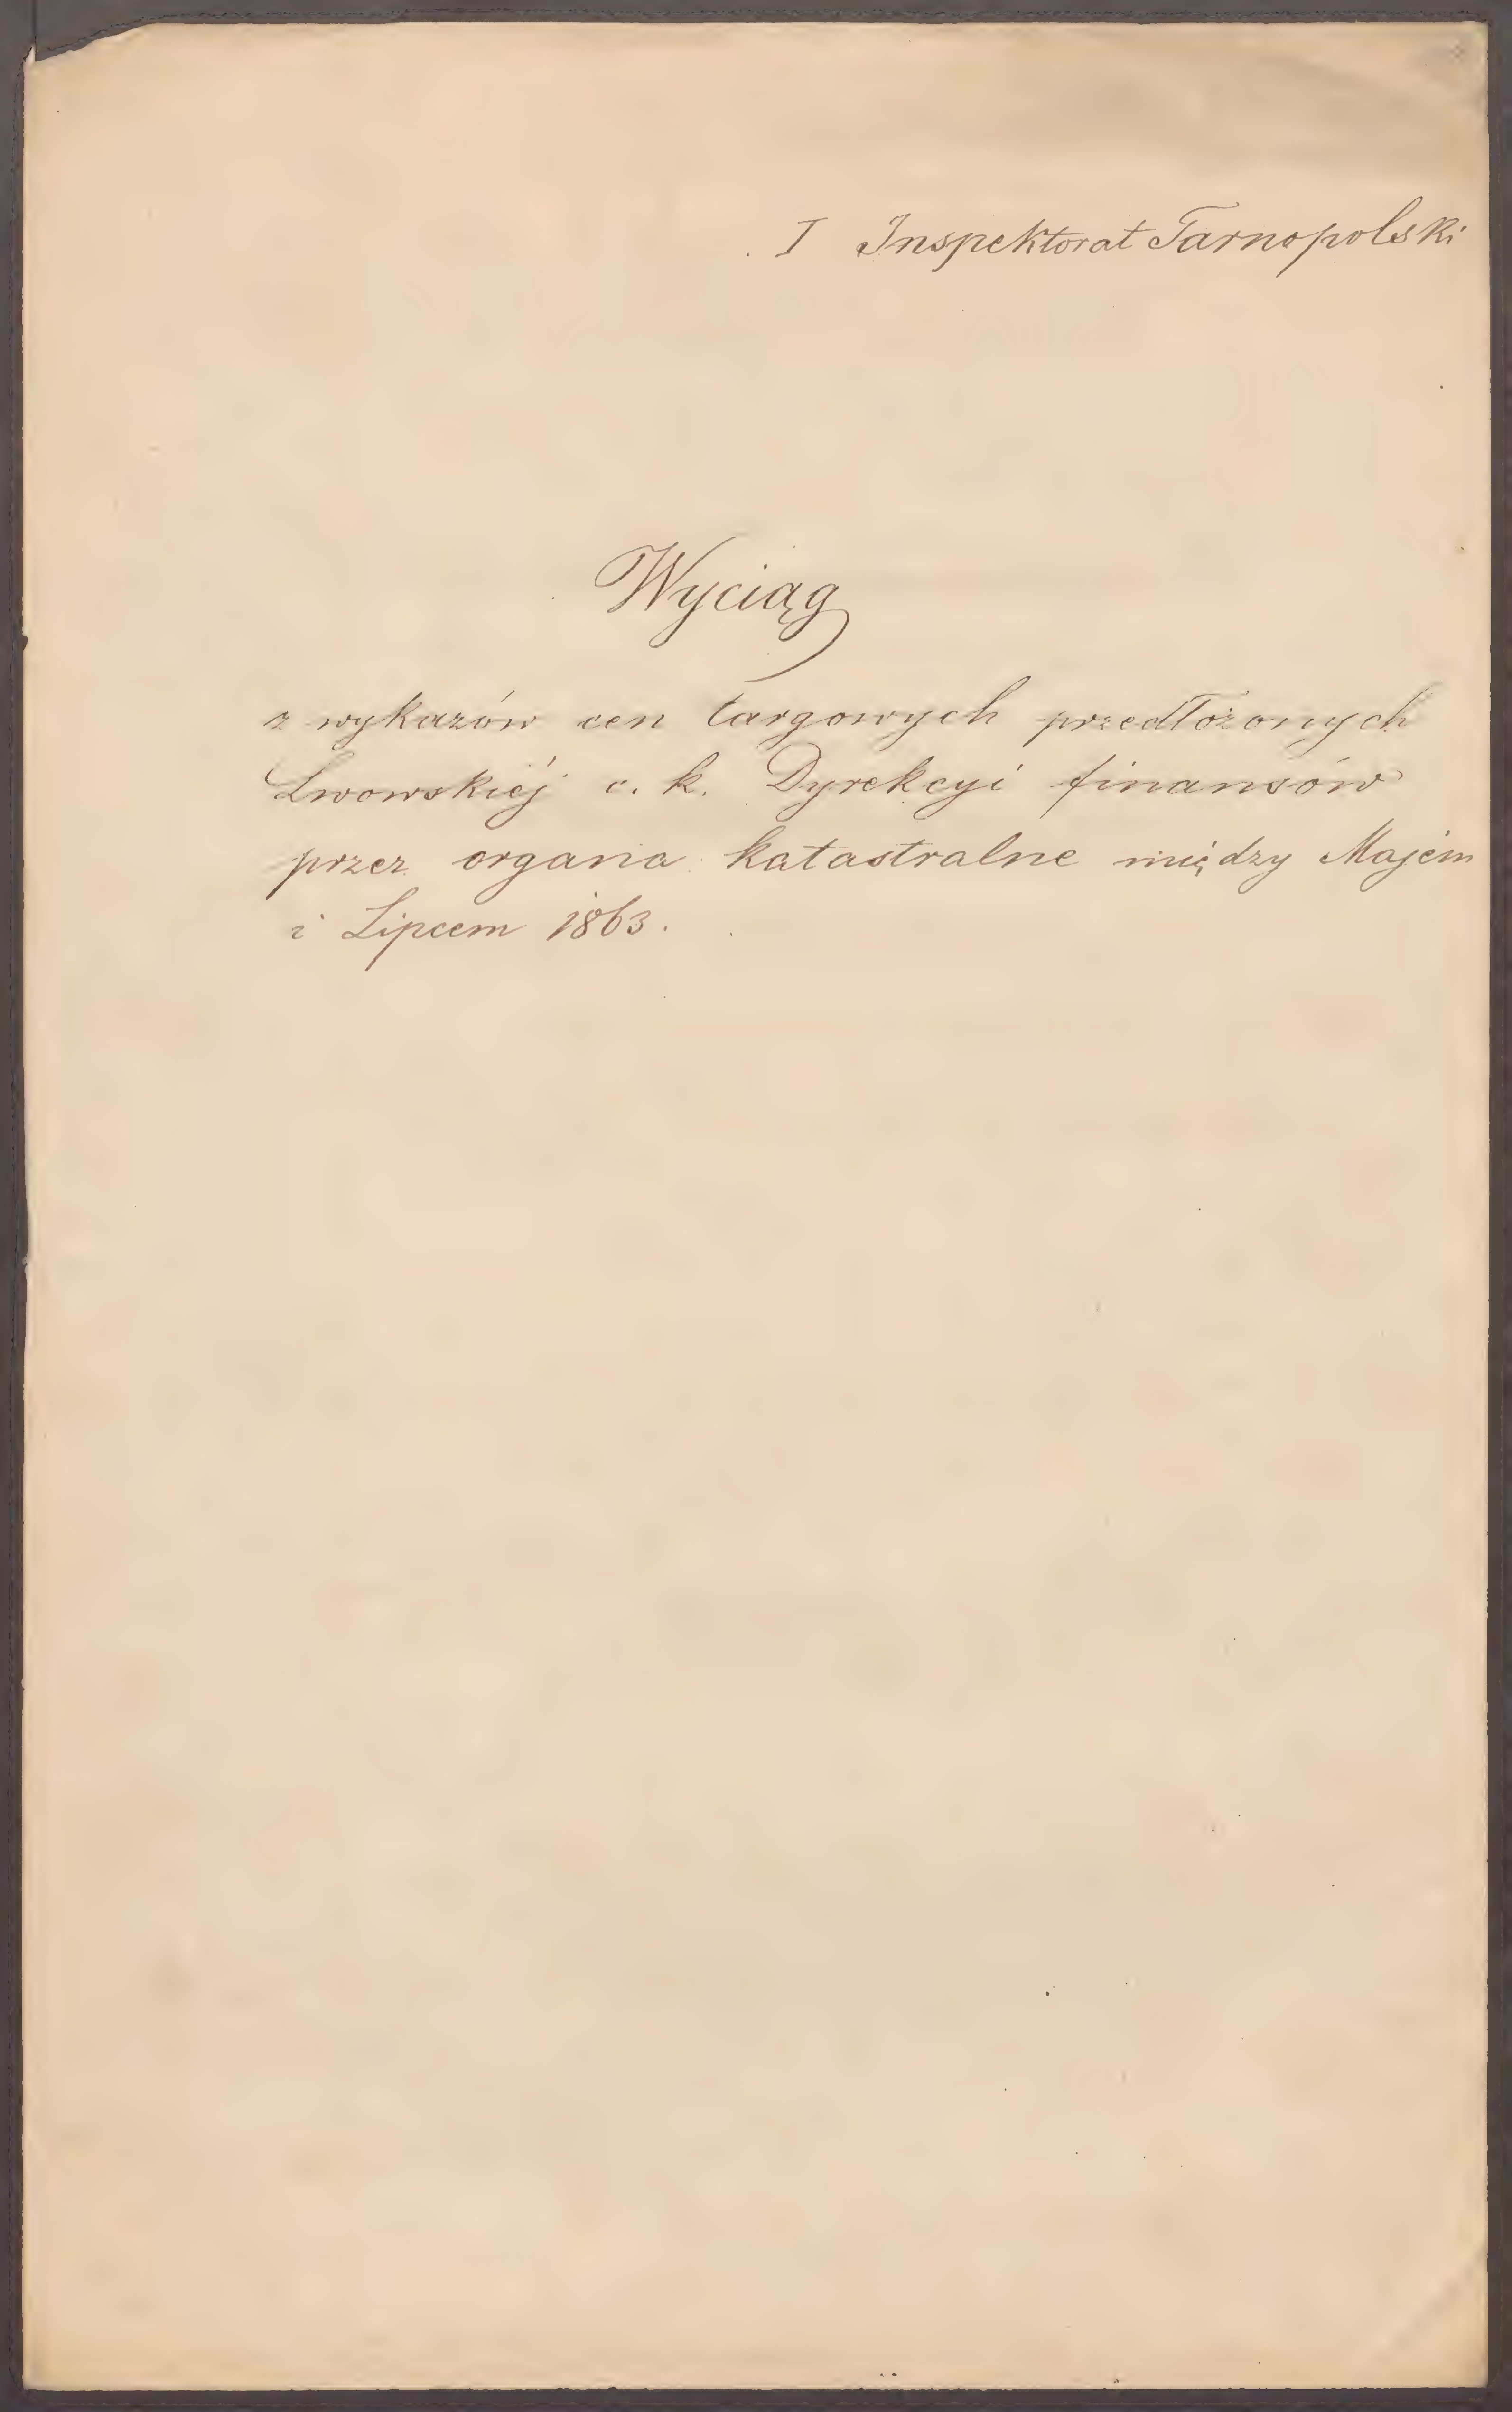 I Inspektorat Tarnopolski
Wyciąg
z wykazów cen targowych przedłożonych
Lwowskiéj c. k. Dyrekcyi finansów
przez organa katastralne między Majem
i Lipcem 1863.